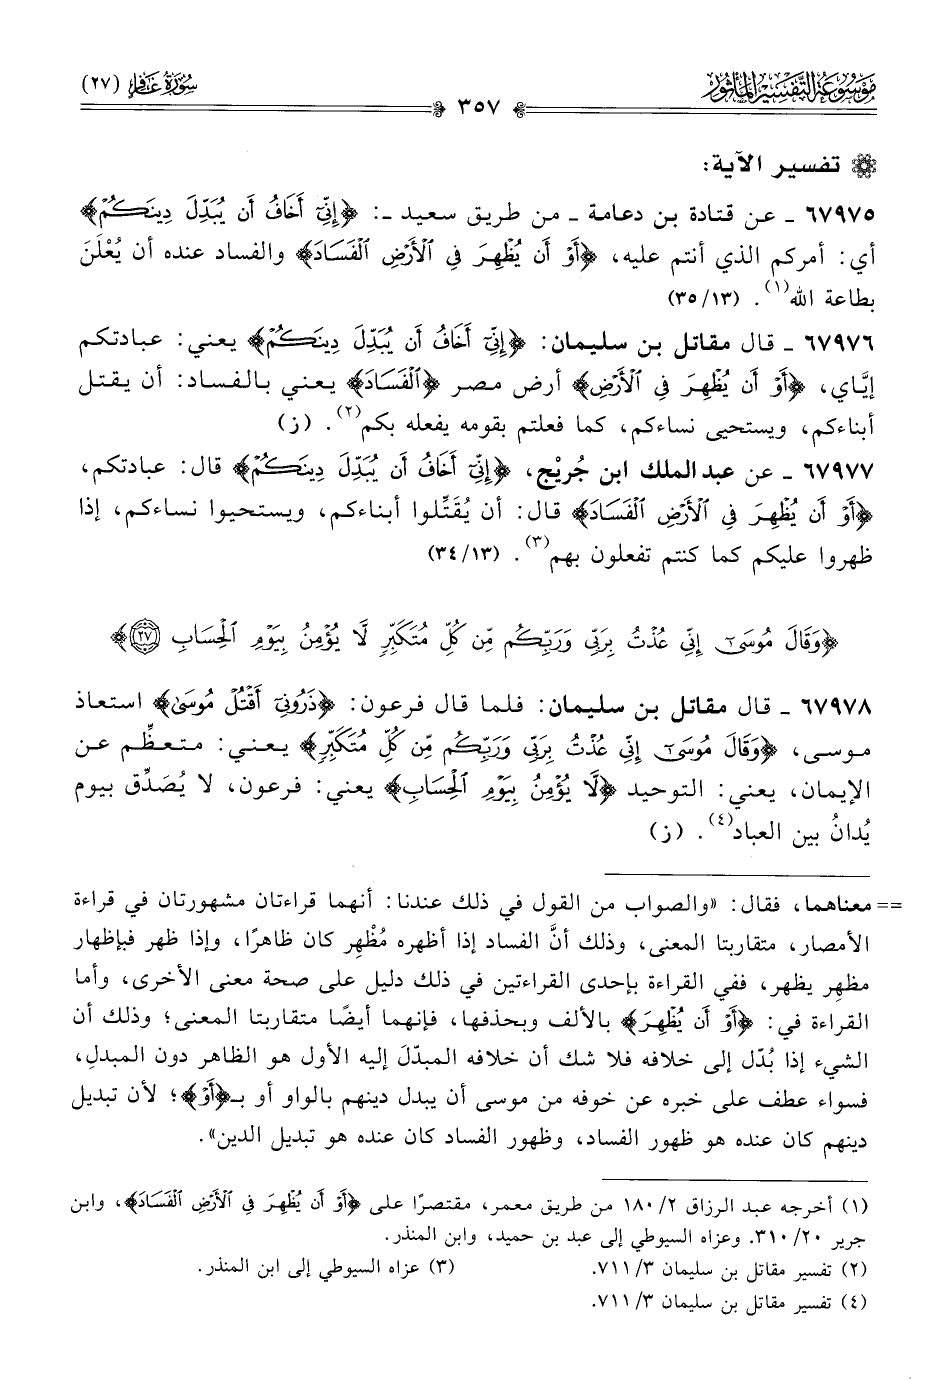 مَوْسُوعَةُ التَّفْسِيرِ المَأْثُور
سُورَةُ غَافِرٍ (٢٧)
٣٥٧
تفسير الآية:
٦٧٩٧٥ ـ عن قتادة بن دعامة ـ من طريق سعيد ـ: ﴿إِنِّيٓ أَخَافُ أَن يُبَدِّلَ دِينَكُمْ﴾
أي: أمركم الذي أنتم عليه، ﴿أَوْ أَن يُظْهِرَ فِي ٱلْأَرْضِ ٱلْفَسَادَ﴾ والفساد عنده أن يُعْلَنَ
بطاعة الله(١). (١٣/ ٣٥)
٦٧٩٧٦ ـ قال مقاتل بن سليمان: ﴿إِنِّيٓ أَخَافُ أَن يُبَدِّلَ دِينَكُمْ﴾ يعني: عبادتكم
إيَّاي، ﴿أَوْ أَن يُظْهِرَ فِي ٱلْأَرْضِ﴾ أرض مصر ﴿ٱلْفَسَادَ﴾ يعني بالفساد: أن يقتل
أبناءكم، ويستحيى نساءكم، كما فعلتم بقومه يفعله بكم(٢). (ز)
٦٧٩٧٧ ـ عن عبد الملك ابن جُريْج، ﴿إِنِّيٓ أَخَافُ أَن يُبَدِّلَ دِينَكُمْ﴾ قال: عبادتكم،
﴿أَوْ أَن يُظْهِرَ فِي ٱلْأَرْضِ ٱلْفَسَادَ﴾ قال: أن يُقَتِّلوا أبناءكم، ويستحيوا نساءكم، إذا
ظهروا عليكم كما كنتم تفعلون بهم(٣). (١٣/ ٣٤)
﴿وَقَالَ مُوسَىٰٓ إِنِّي عُذْتُ بِرَبِّي وَرَبِّكُم مِّن كُلِّ مُتَكَبِّرٍ لَّا يُؤْمِنُ بِيَوْمِ ٱلْحِسَابِ ٢٧﴾
٦٧٩٧٨ ـ قال مقاتل بن سليمان: فلما قال فرعون: ﴿ذَرُونِيٓ أَقْتُلْ مُوسَىٰ﴾ استعاذ
موسى، ﴿وَقَالَ مُوسَىٰٓ إِنِّي عُذْتُ بِرَبِّي وَرَبِّكُم مِّن كُلِّ مُتَكَبِّرٍ﴾ يعني: متعظِّم عن
الإيمان، يعني: التوحيد ﴿لَّا يُؤْمِنُ بِيَوْمِ ٱلْحِسَابِ﴾ يعني: فرعون، لا يُصَدِّق بيوم
يُدانُ بين العباد(٤). (ز)
== معناهما، فقال: «والصواب من القول في ذلك عندنا: أنهما قراءتان مشهورتان في قراءة
الأمصار، متقاربتا المعنى، وذلك أنَّ الفساد إذا أظهره مُظْهِر كان ظاهرًا، وإذا ظهر فبإظهار
مظهِر يظهر، ففي القراءة بإحدى القراءتين في ذلك دليل على صحة معنى الأخرى، وأما
القراءة في: ﴿أَوْ أَن يُظْهِرَ﴾ بالألف وبحذفها، فإنهما أيضًا متقاربتا المعنى؛ وذلك أن
الشيء إذا بُدّل إلى خلافه فلا شك أن خلافه المبدّلَ إليه الأول هو الظاهر دون المبدلِ،
فسواء عطف على خبره عن خوفه من موسى أن يبدل دينهم بالواو أو بـ﴿أَوْ﴾؛ لأن تبديل
دينهم كان عنده هو ظهور الفساد، وظهور الفساد كان عنده هو تبديل الدين».
(١) أخرجه عبد الرزاق ٢/ ١٨٠ من طريق معمر، مقتصرًا على ﴿أَوْ أَن يُظْهِرَ فِي ٱلْأَرْضِ ٱلْفَسَادَ﴾، وابن
جرير ٢٠/ ٣١٠. وعزاه السيوطي إلى عبد بن حميد، وابن المنذر.
(٢) تفسير مقاتل بن سليمان ٣/ ٧١١. (٣) عزاه السيوطي إلى ابن المنذر.
(٤) تفسير مقاتل بن سليمان ٣/ ٧١١.